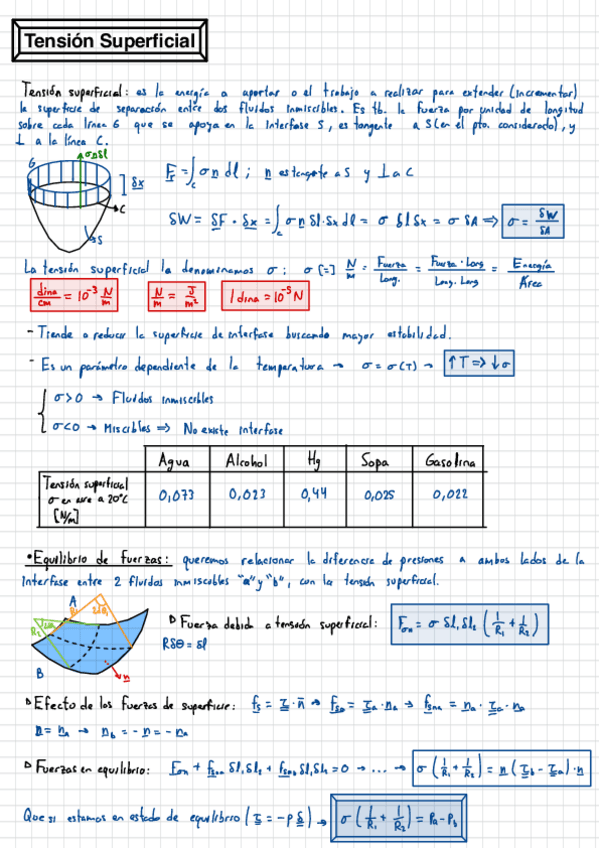 Tensión Superficial
Tensión superficial: es la energía a aportar o el trabajo a realizar para extender (incrementar)
la superficie de separación entre dos fluidos inmiscibles. Es tb. la fuerza por unidad de longitud
sobre cada línea G que se apoya en la interfase S, es tangente a S (en el pto. considerado), y
⊥ a la línea C.
G σnδl δx C S
F = ∫c σ n dl ; n es tangente a S y ⊥ a C
δW = δF · δx = ∫c σ n δl · δx dl = σ δl δx = σ δA ⇒ σ = δW/δA
La tensión superficial la denominamos σ ; σ [=] N/m = Fuerza/Long. = Fuerza · Long/Long. Long = Energía/Área
dina/cm = 10⁻³ N/m N/m = J/m² 1 dina = 10⁻⁵ N
- Tiende a reducir la superficie de interfase buscando mayor estabilidad.
- Es un parámetro dependiente de la temperatura → σ = σ(T) → ↑T ⇒ ↓σ
σ>0 → Fluidos inmiscibles
σ<0 → Miscibles ⇒ No existe interfase
Agua Alcohol Hg Sopa Gasolina
Tensión superficial
σ en aire a 20°C
[N/m]
0,073 0,023 0,44 0,025 0,022
• Equilibrio de fuerzas: queremos relacionar la diferencia de presiones a ambos lados de la
interfase entre 2 fluidos inmiscibles "a" y "b", con la tensión superficial.
A R₁ R₂ B n
Fuerza debida a tensión superficial: Fσn = σ δl₁ δl₂ (1/R₁ + 1/R₂)
Rδθ = δl
Efecto de los fuerzas de superficie: fs = τ · n̄ → fsa = τa · na → fsna = na · τa · na
n = na → nb = - n = - na
Fuerzas en equilibrio: Fσn + fsna δl₁ δl₂ + fsnb δl₁ δl₂ = 0 → ... → σ (1/R₁ + 1/R₂) = n (τb - τa) · n
Que si estamos en estado de equilibrio (τ = -p δ) → σ (1/R₁ + 1/R₂) = Pa - Pb